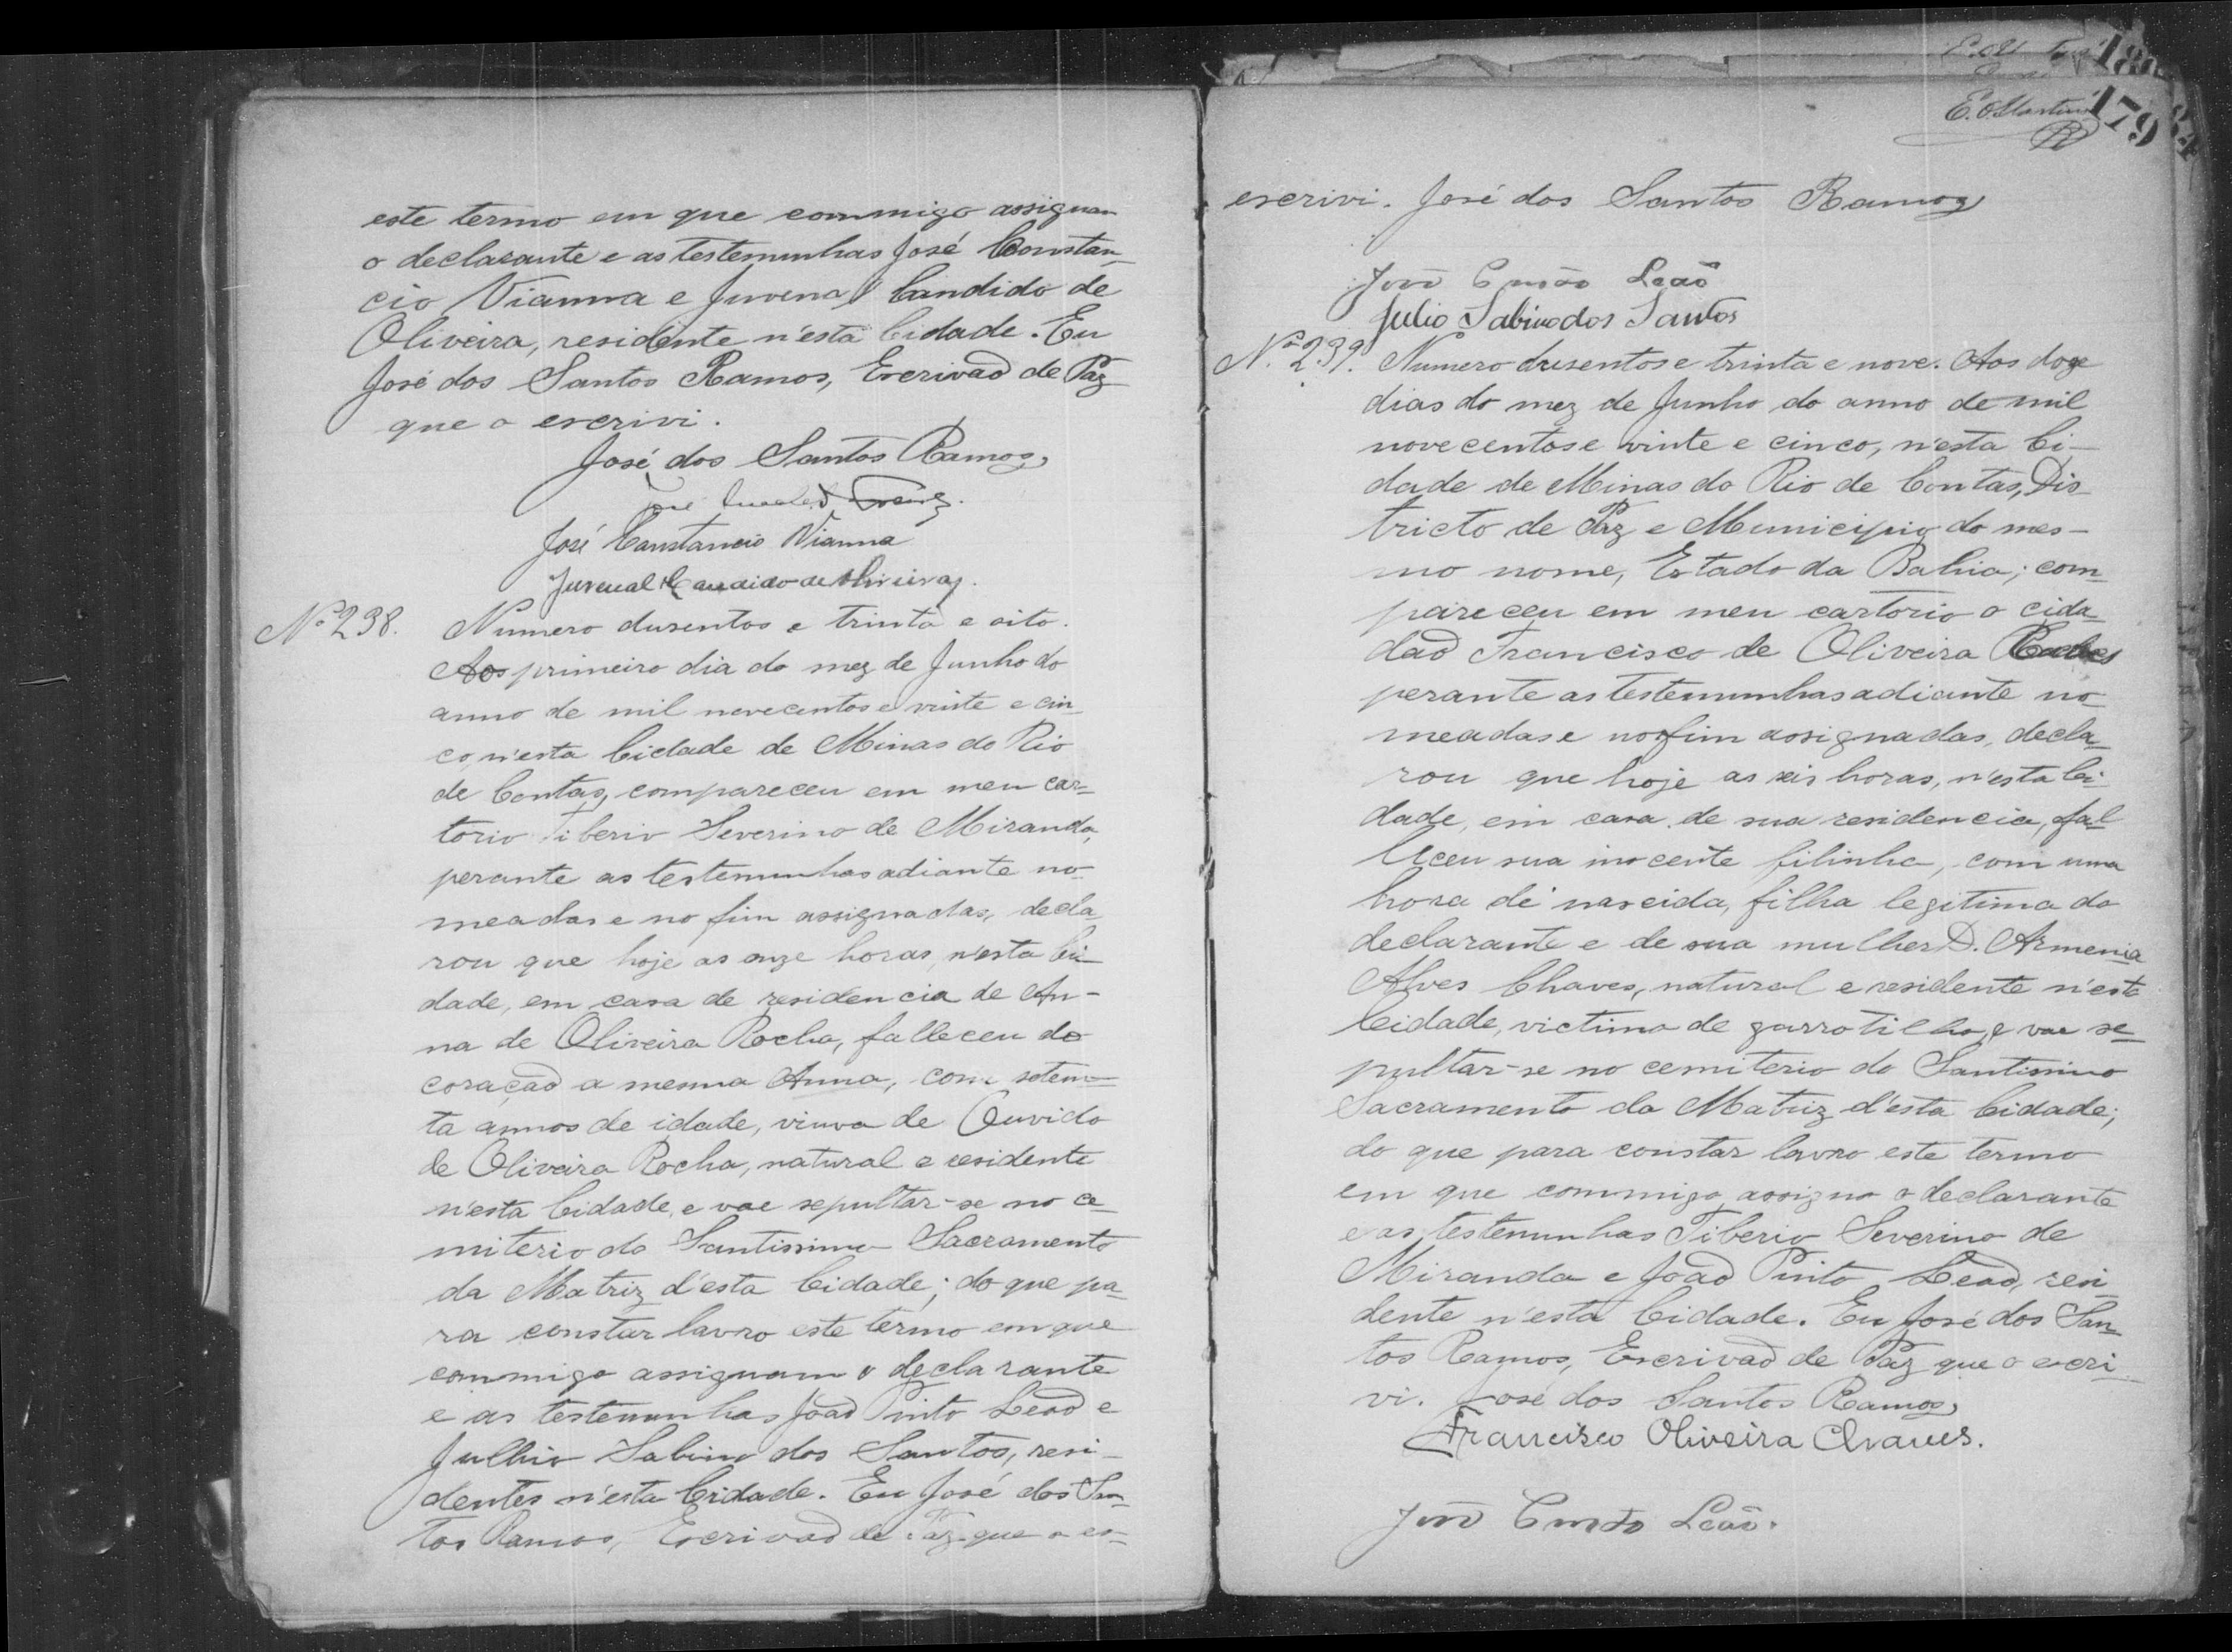 este termo em que commigo assignam
o declarante e as testemunhas José Constan_
cio Vianna e Juvenal Candido de
Oliveira, residente n'esta Cidade. Eu
José dos Santos Ramos, Escrivaõ de Paz
que o escrivi.
José dos Santos Ramos,
José
José Constancio Vianna
Juvenal Candido de Oliveira.
Nº 238. Numero dusentos e trinta e oito.
Aos primeiro dia do mez de Junho do
anno de mil novecentos e vinte e cin_
co, n'esta Cidade de Minas do Rio
de Contas, compareceu em meu car=
torio Tiberio Severino de Miranda,
perante as testemunhas adiante no_
meadas e no fim assignadas, decla_
rou que hoje as onze horas, n'esta Ci_
dade, em casa de residencia de An-
na de Oliveira Rocha, falleceu do
coraçaõ a mesma Anna, com setem_
ta annos de idade, viuva de Ouvido
de Oliveira Rocha, natural e residente
n'esta Cidade, e vae sepultar-se no ce_
miterio do Santissimo Sacramento
da Matriz d'esta Cidade; do que pa_
ra constar lavro este termo em que
commigo assignam o declarante
e as testemunhas Joaõ Pinto Leaõ e
Julhio Sabino dos Santos, resi_
dentes n'esta Cidade. Eu José dos San_
tos Ramos, Escrivaõ de Paz que o es_
E. Martins
180
179
escrivi. José dos Santos Ramos
Joaõ Leaõ
Julio Sabino dos Santos
Nº 239. Numero dusentos e trinta e nove. Aos doze
dias do mez de Junho do anno de mil
novecentos e vinte e cinco, n'esta Ci_
dade de Minas do Rio de Contas, Dis_
tricto de Paz e Municipio do mes-
mo nome, Estado da Bahia; com_
pareceu em meu cartorio o cida_
daõ Francisco de Oliveira
perante as testemunhas adiante no_
meadas e no fim assignadas, decla_
rou que hoje as seis horas, n'esta Ci_
dade, em casa de sua residencia, fal_
leceu sua inocente filinha, com uma
hora de nascida, filha legitima do
declarante e de sua mulher D. Armenia
Alves Chaves, natural e residente n'esta
Cidade, victima de garrotilho, e vae se_
pultar-se no cemiterio do Santissimo
Sacramento da Matriz d'esta Cidade;
do que para constar lavro este termo
em que commigo assigno o declarante
e as testemunhas Tiberio Severino de
Miranda e Joaõ Pinto Leaõ, resi_
dente n'esta Cidade. Eu José dos San_
tos Ramos, Escrivaõ de Paz que o escri_
vi. José dos Santos Ramos,
Francisco Oliveira Chaves.
Joaõ Leaõ.